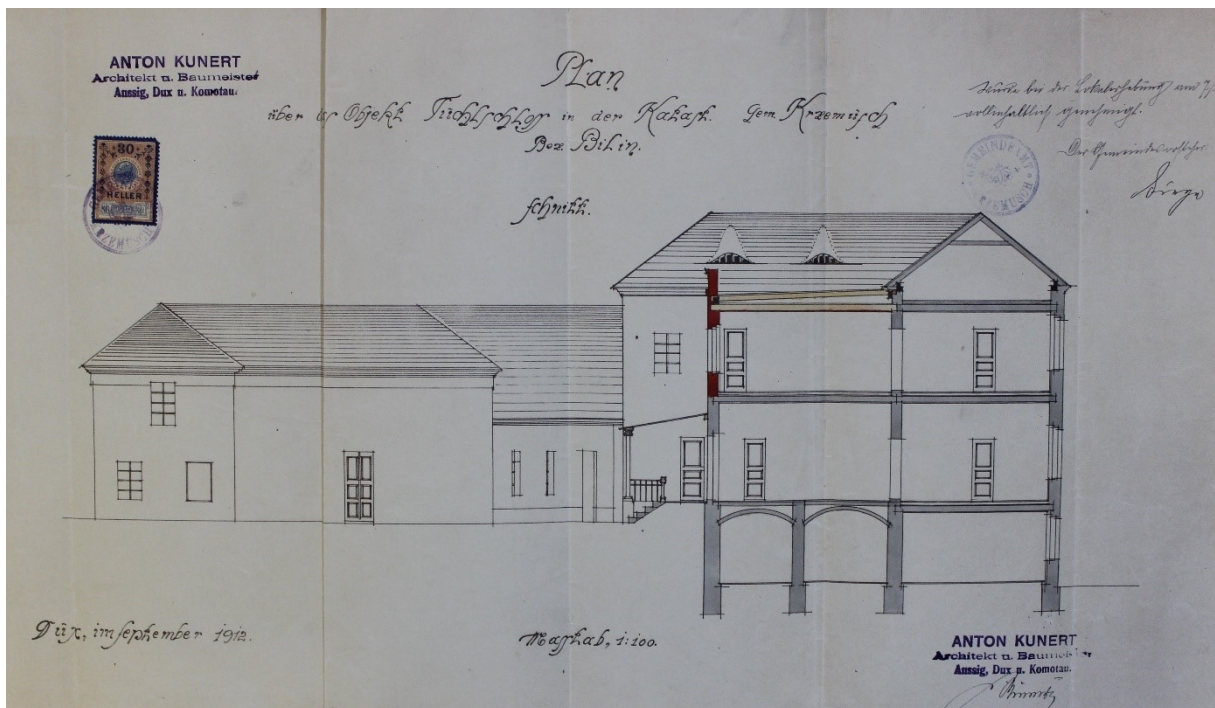 ANTON KUNERT
Architekt u. Baumeister
Aussig, Dux u. Komotau.
30
HELLER
Plan
über das Objekt Tüchlschloss in der Katast. gem. Krzemusch
Bez. Bilin.
schnitt.
Wurde bei der Lokalerhebung am
vollinhaltlich genehmigt.
Der Gemeindevorsteher
GEMEINDEAMT
KRZEMUSCH
Dux, im september 1912.
Masstab, 1:100.
ANTON KUNERT
Architekt u. Baumeister
Aussig, Dux u. Komotau.